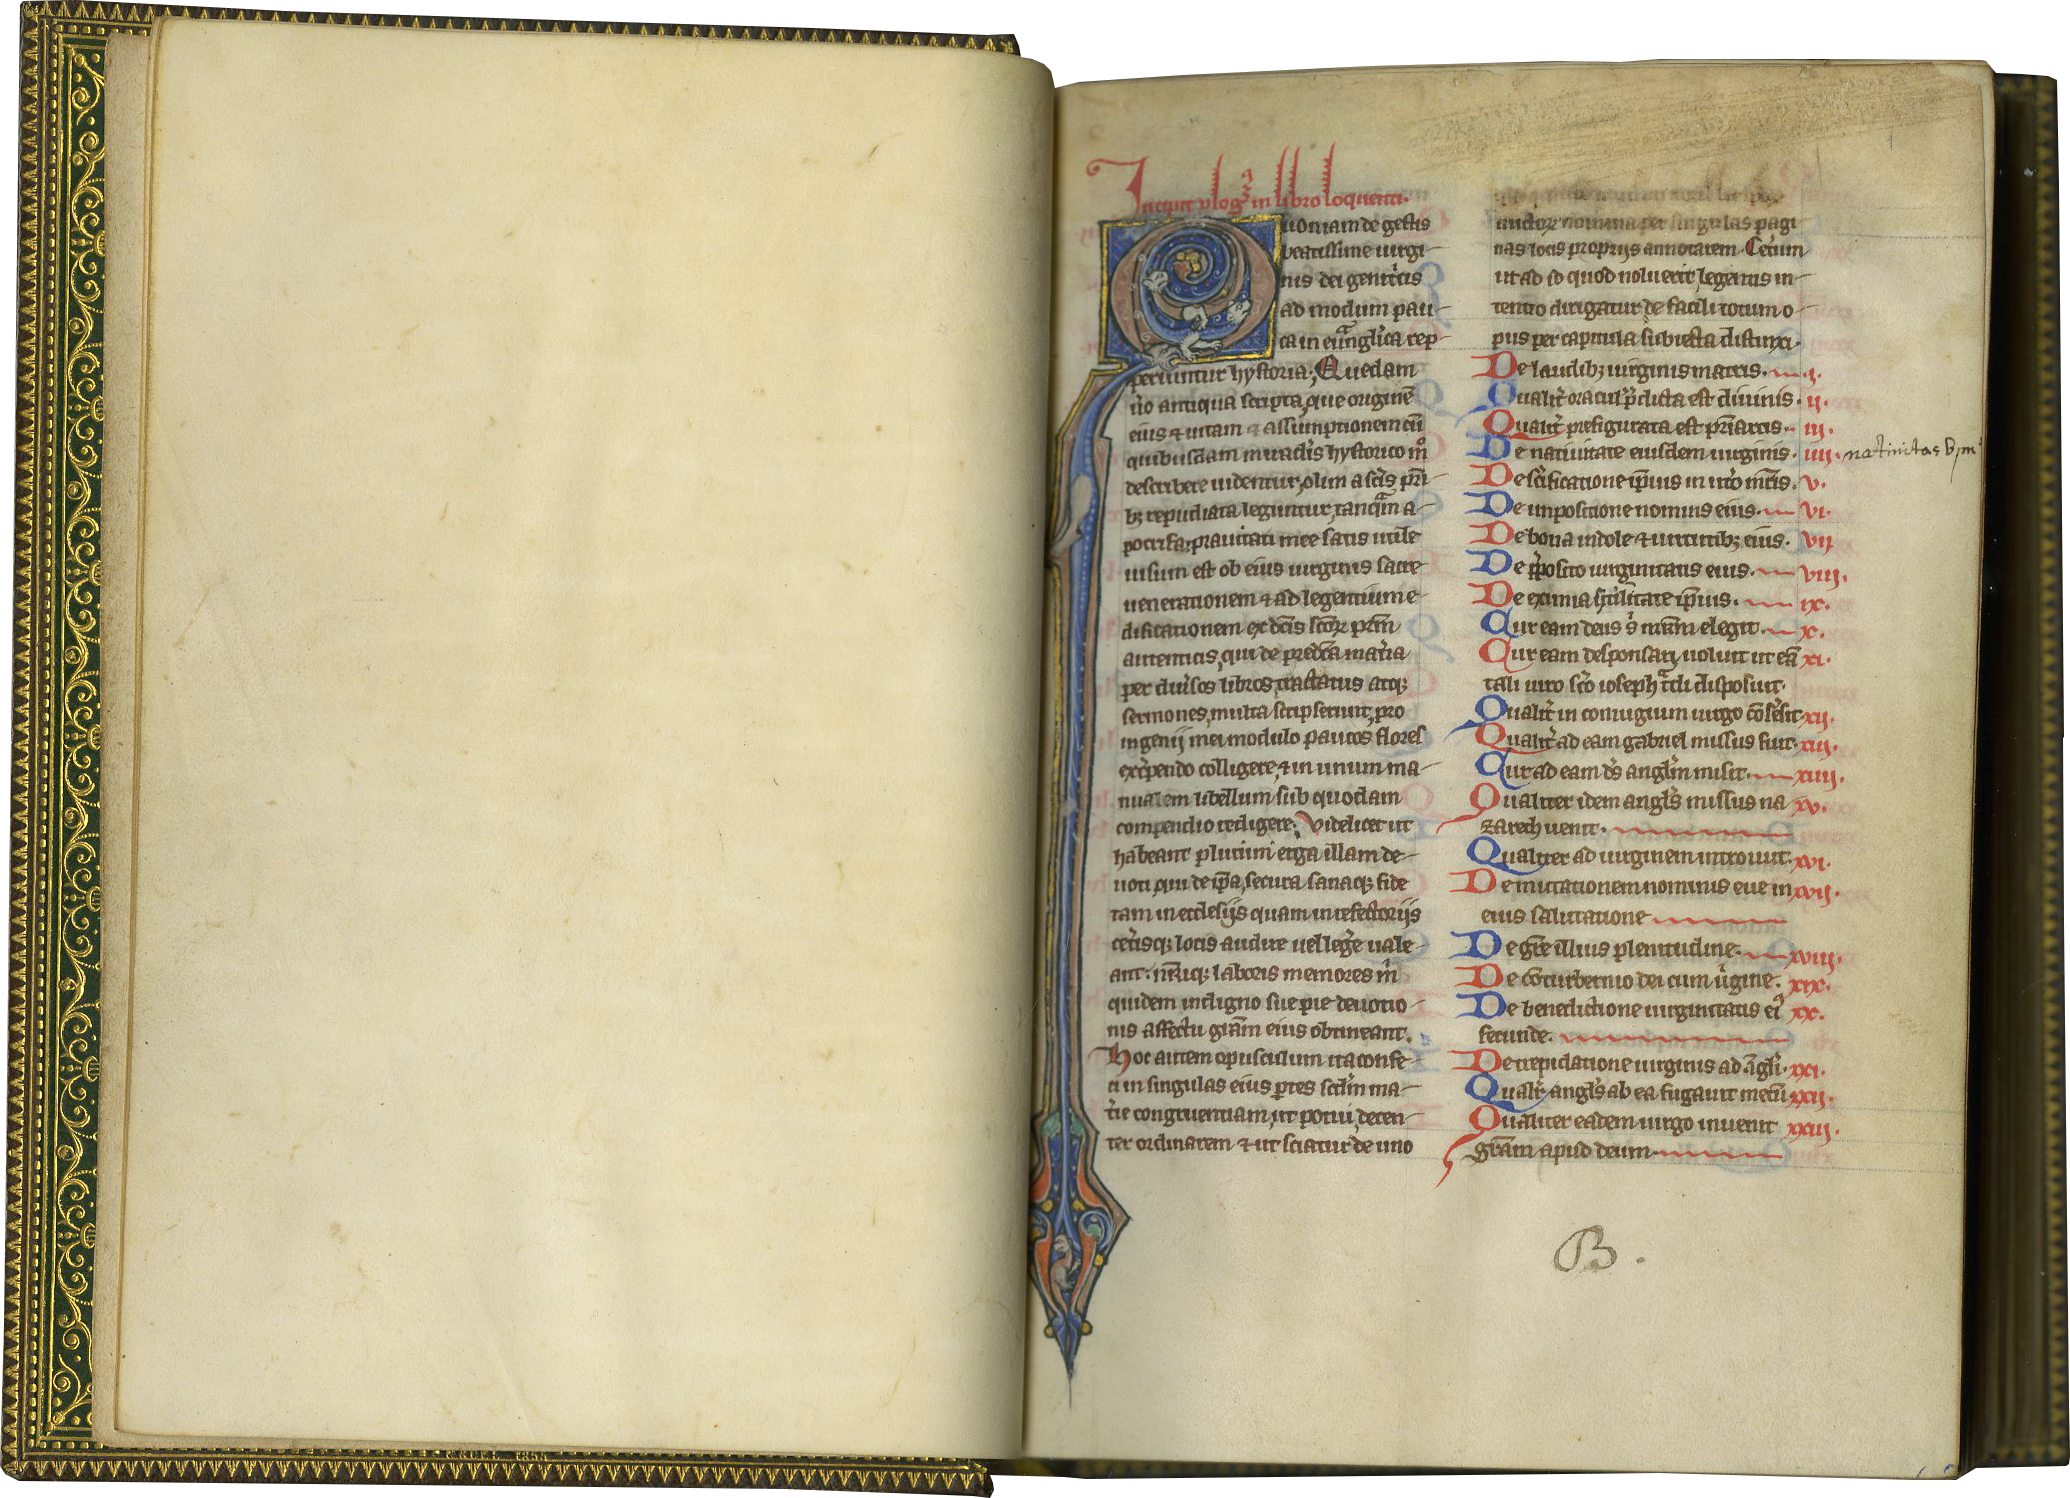 Incipit plogꝰ in libro loquenti.
Quoniam de gestis
beatissime uirgi-
nis dei genitͥcis
ad modum pau-
ca in euãglica rep-
periuntur hystoria; Quedam
ůo antiqua scripta, que originẽ
eius ⁊ uitam ⁊ assumptionem cũ
quibusdam miraclis hystorico mͦ
describere uidentur, olim a scis pri-
bꝫ repudiata leguntur, tanqͣm a-
pocrifa; prauitati mee satis utile
uisum est ob eius uirginis sacre
uenerationem ⁊ ad legentium e-
dificationem ex dcis scoꝝ prm
autenticis, qui de predca matia
per diuͥsos libros, tractatus atqꝫ
sermones, multa scripserunt, pro
ingenij mei modulo paucos flores
excͥpendo colligere, ⁊ in unum ma-
nualem libellum sub quodam
compendio redigere; Videlicet ut
habeant plurimi erga illam de-
uoti, qui de ipa, secura sanaqꝫ fide
tam in ecclesijs quam in refectorijs
ceͥtisqꝫ locis audire uel legͥe uale-
ant: nr̃iqꝫ laboris memores m̃
quidem indigno sue pie deuotio-
nis affectu grãm eius obtineant.
Hoc autem opusculum ita confe-
ci in singulas eius ptes scdm ma-
tͥie congruentiam, ut potui, decen-
ter ordinarem ⁊ ut sciatur de uno
auctoꝝ nomina per singulas pagi
nas locis proprijs annotarem. Ceteͥum
ut ad id quod noluerit, legentis in-
tentio dirigatur de facili totum o-
pus per capitula subiecta distinxi.
De laudibꝫ uirginis matris. i.
Qualitͥ oracul pͥdicta est diuinis. ii.
Qualitͥ prefigurata est priarcis. iii.
De natiuitate eiusdem uirginis. iiii. natiuitas b m
De scificatione ipius in utͥo mtis. v.
De impositione nominis eius. vi.
De bona indole ⁊ uirtutibꝫ eius. vii.
De pͥposito uirginitatis eius. viii.
De eximia hũilitate ipius. ix.
Cur eam deus ĩ mrem elegit. x.
Cur eam desponsari uoluit ut eã xi.
tali uiro sco ioseph tͣdi disposuit.
Qualitͥ in coniugium uirgo cõsẽsit. xii.
Qualitͥ ad eam gabriel missus fuit. xiii.
Cur ad eam ds anglm misit. xiiii.
Qualiter idem angls missus na xv.
zareth uenit.
Qualiter ad uirginem introiuit. xvi.
De mutationem nominis eue in xvii.
eius salutatione
De gre illius plenitudine. xviii.
De cõturbernio dei cum uͥgine. xix.
De benedictione uirginitatis eiꝰ xx.
fecunde.
De trepidatione uirginis ad ãgli. xxi.
Qualitͥ angls ab ea fugauit metũ xxii.
Qualiter eadem uirgo inuenit xxiii.
grãm apud deum.
B.